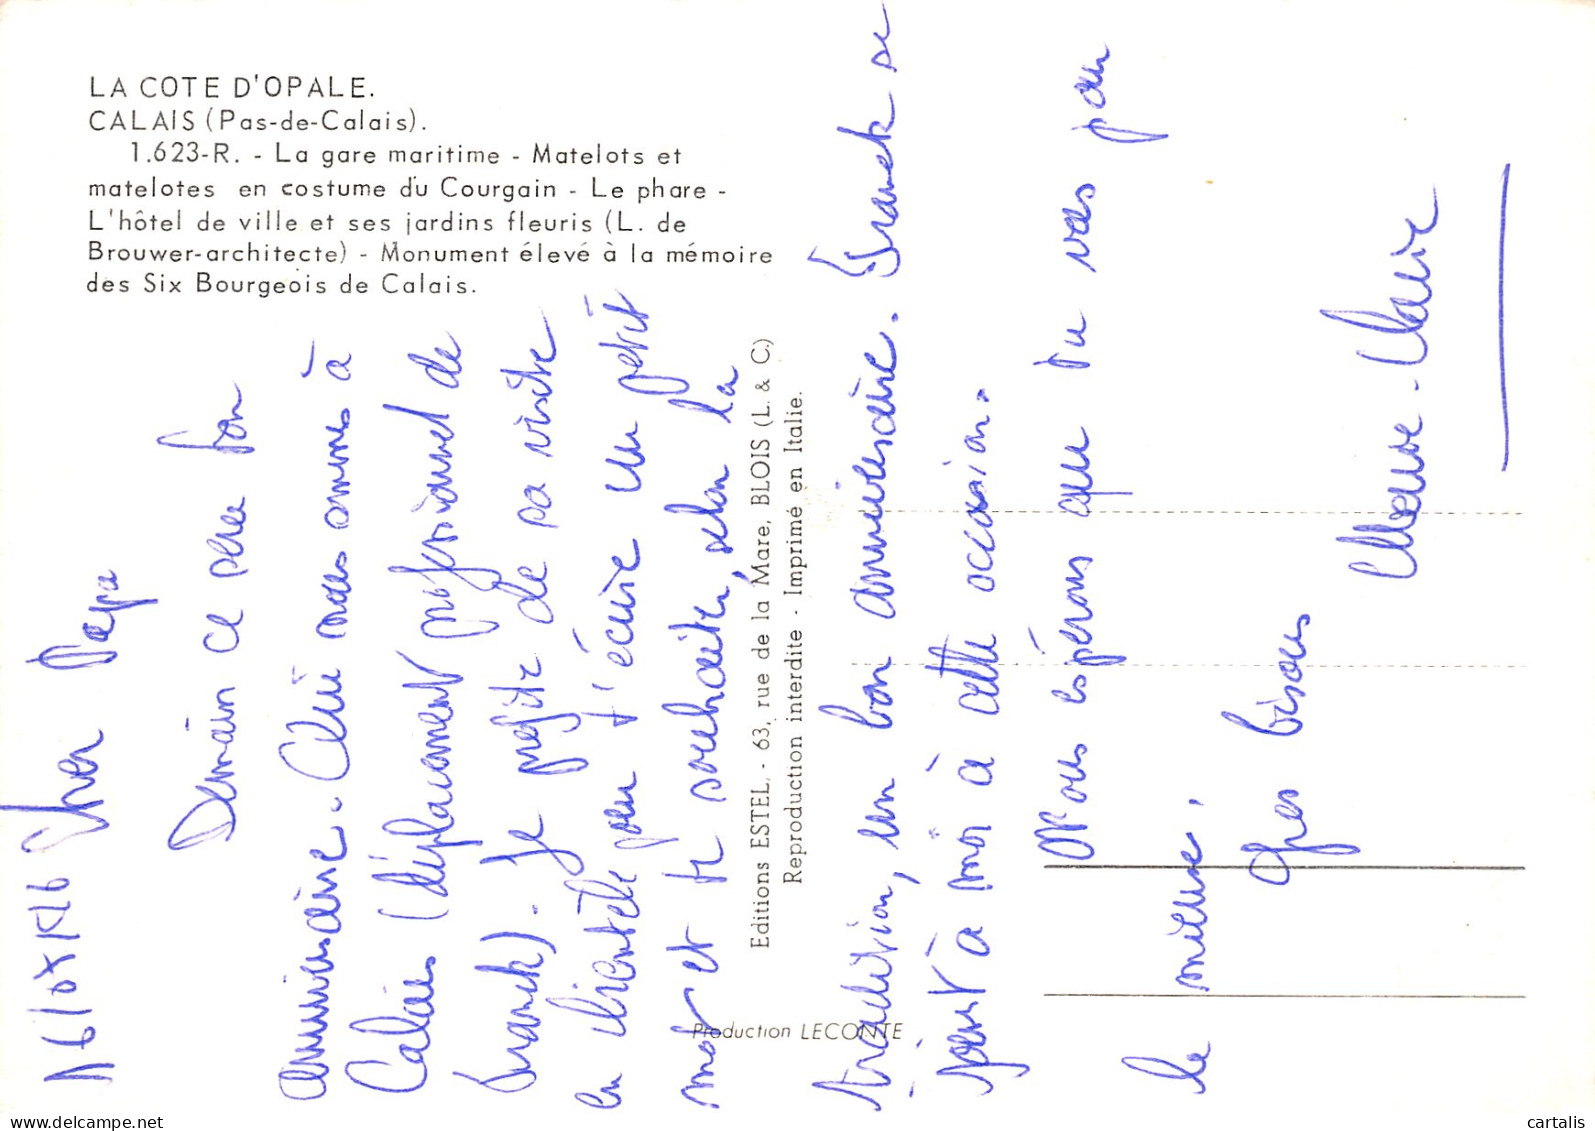 LA COTE D'OPALE.
CALAIS (Pas-de-Calais).
1.623-R. - La gare maritime - Matelots et
matelotes en costume du Courgain - Le phare -
L'hôtel de ville et ses jardins fleuris (L. de
Brouwer-architecte) - Monument élevé à la mémoire
des Six Bourgeois de Calais.
Editions ESTEL, - 63, rue de la Mare, BLOIS (L. & C.)
Reproduction interdite - Imprimé en Italie.
Production LECONTE
Cher Papa
Demain ce sera ton
anniversaire. Cette nous sommes à
Calais (déplacement professionnel de
Franck). Je profite de sa visite
en clientèle pour t'écrire un petit
mot et te souhaiter, selon la
tradition, un bon anniversaire. Franck se
joint à moi à cette occasion.
Nous espérons que tu vas pour
le mieux.
Gros bisous
Marie
cartalis | www.delcampe.net